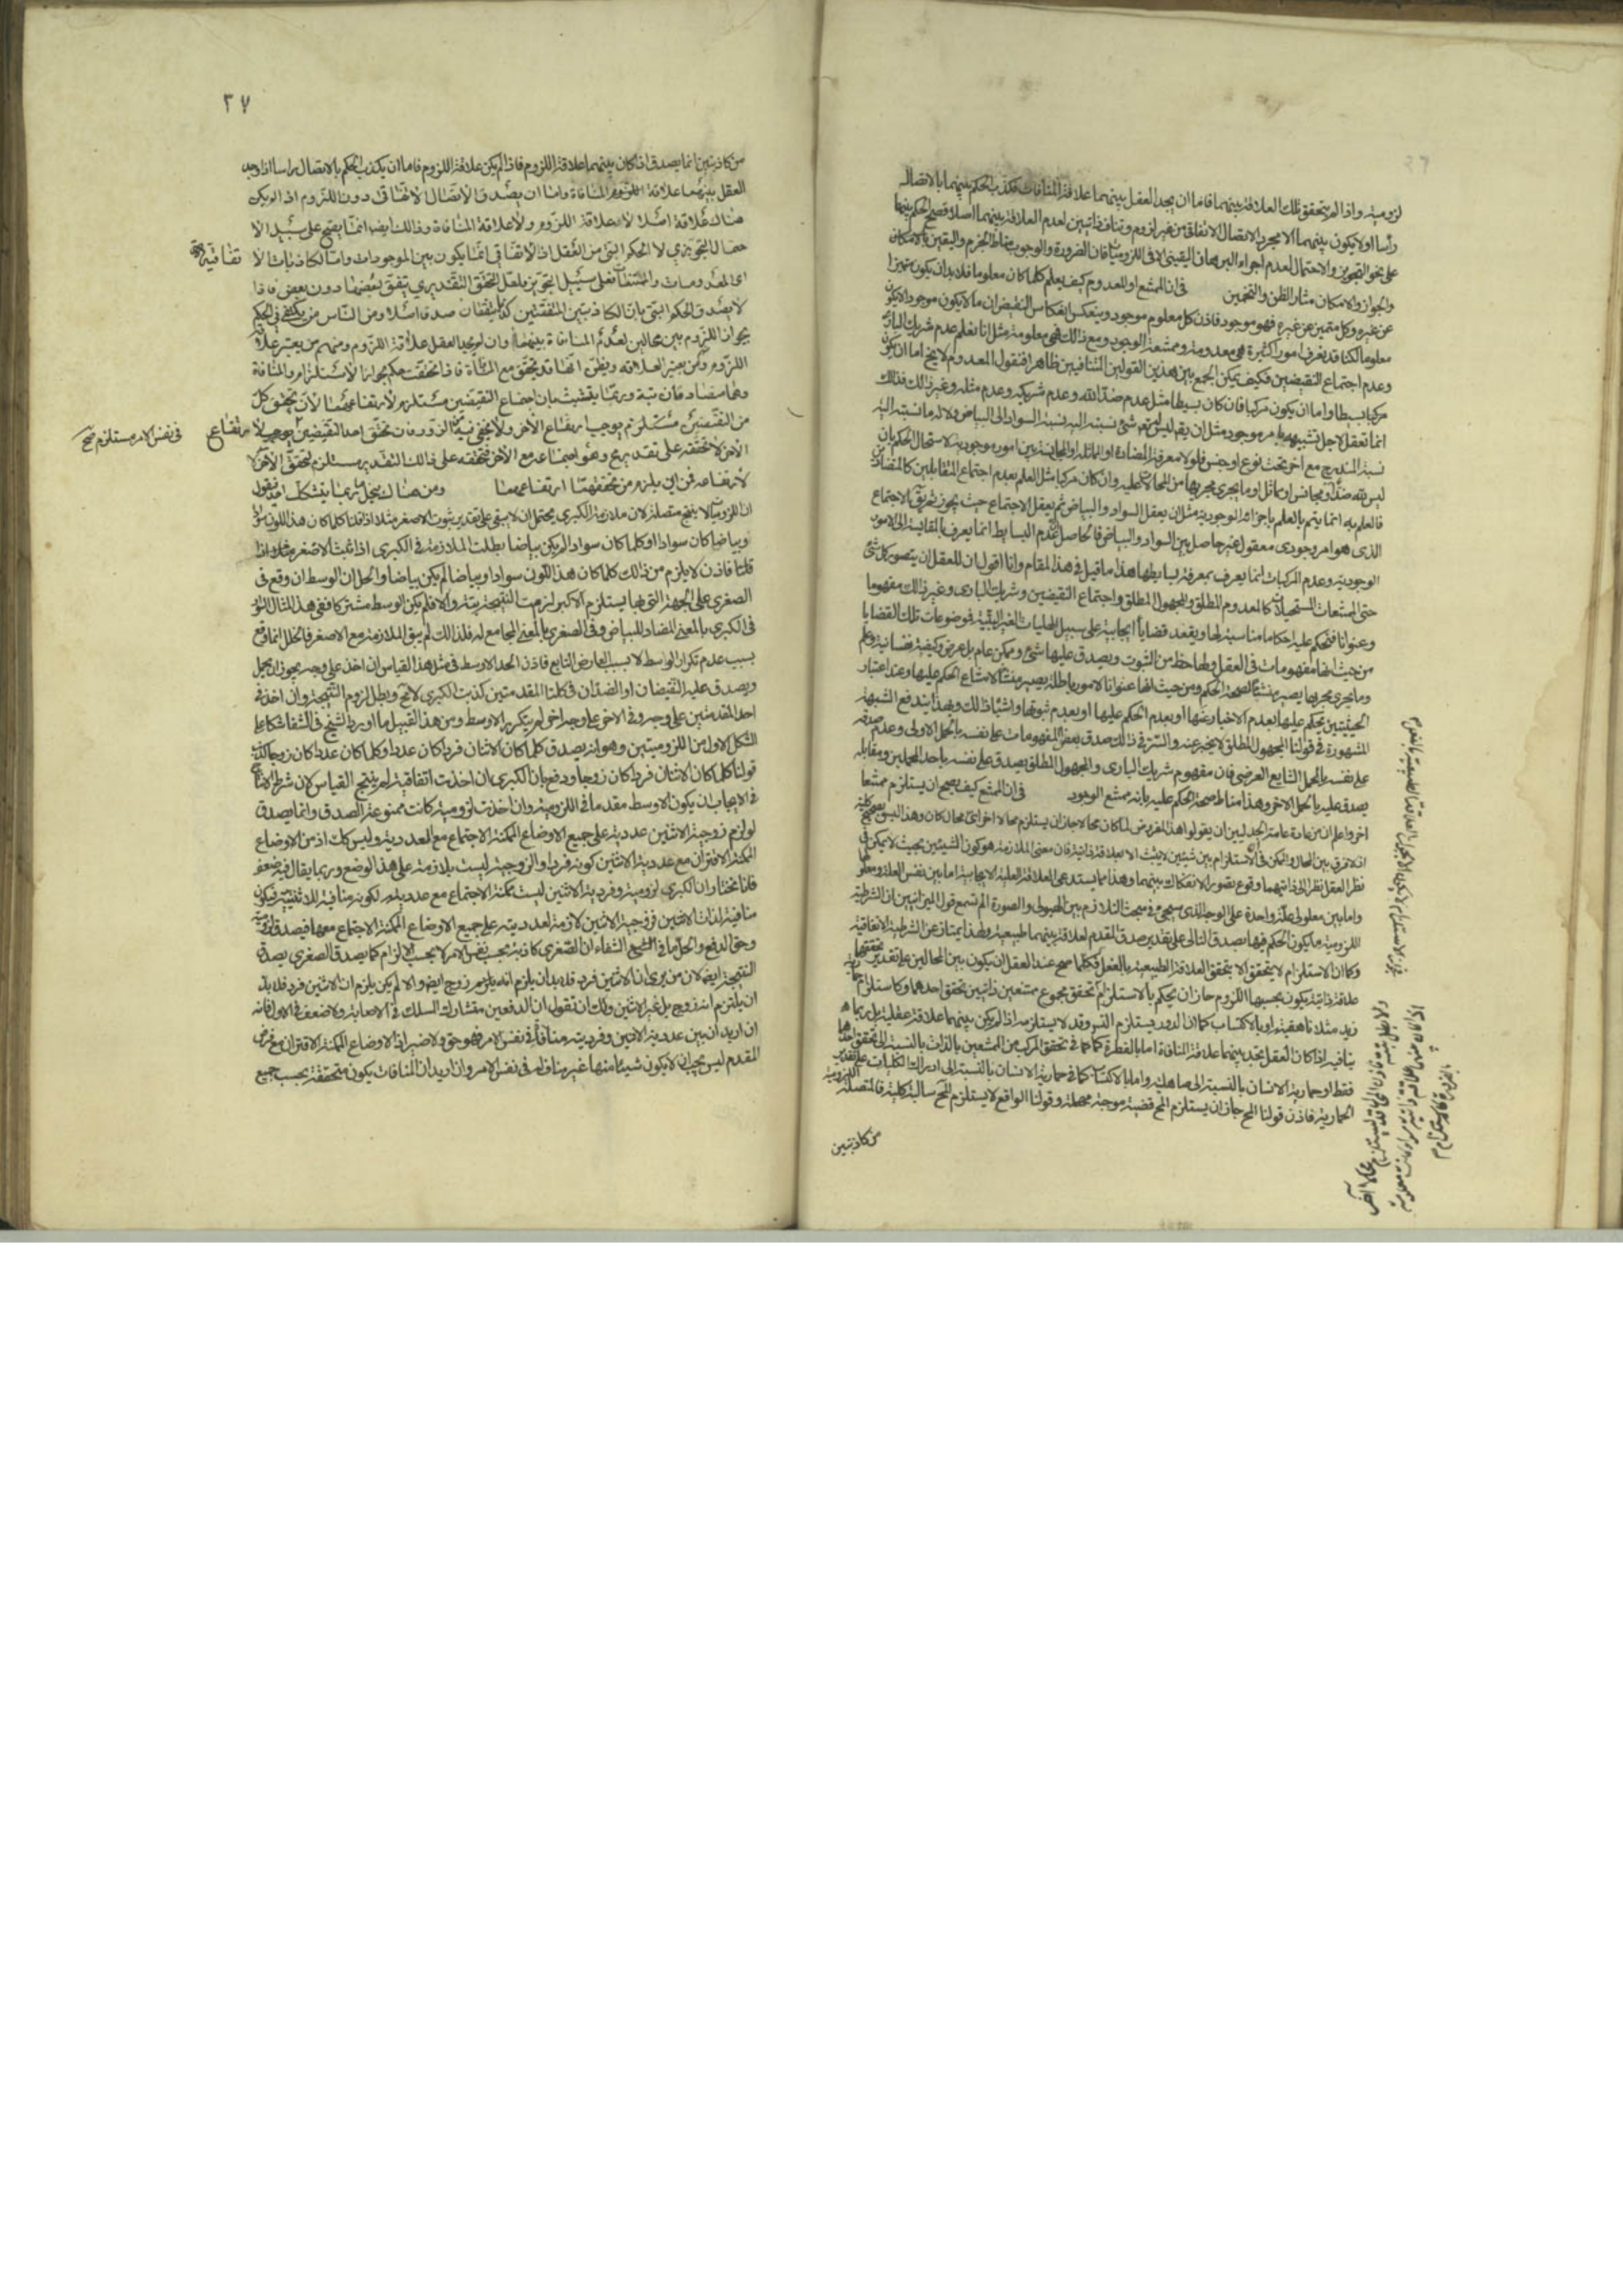 لزومية واذا لم يتحقق تلك العلاقة بينهما فاما ان يجد العقل بينهما علاقة المنافات فكذب الحكم بينهما بالاتصال
رأسا او لا يكون بينهما الا مجرد الاتصال الاتفاقي من غير لزوم وتناف ذاتيين لعدم العلاقة بينهما اصلا فصح الحكم بينهما
على نحو التجويز والاحتمال لعدم اجراء البرهان اليقيني الا في اللزوميات فان الضرورة والوجوب مناط الجزم واليقين والامكان
والجواز والامكان مثار الظن والتخمين في ان الممتنع او المعدوم كيف يعلم كلما كان معلوما فلا بد ان يكون متميزا
عن غيره وكل متميز عن غيره فهو موجود فاذن كل معلوم موجود وينعكس انعكاس النقيض ان ما لا يكون موجودا لا يكون
معلوما لكنا قد نعرف امورا كثيرة هي معدومة وممتنعة الوجود ومع ذلك فهي معلومة مثل انا نعلم عدم شريك البارئ
وعدم اجتماع النقيضين فكيف يمكن الجمع بين هذين القولين المتنافيين ظاهرا فنقول المعدوم لا يخ اما ان يكون
مركبا بسيطا واما ان يكون مركبا فان كان بسيطا مثل عدم ضد الله وعدم شريكه وعدم مثله وغير ذلك فذلك
انما تعقل لاجل تشبيهه بامر موجود مثل ان يقم ليس له تع شئ نسبته اليه نسبة السواد الى البياض ولا له ما نسبته اليه
نسبة المندرج مع آخر تحت نوع او جنس فلولا معرفة المضادة او المماثلة والمجانسة بين امور موجودية لاستحال الحكم بان
ليس لله ضد او مجانس او مماثل او ما يجرى مجريها من المحالات عليه وان كان مركبا مثل العلم بعدم اجتماع المتقابلين كالمتضادين
فالعلم به انما يتم بالعلم باجزائه الوجودية مثل ان يعقل السواد والبياض ثم يعقل الاجتماع حيث يجوز ثم يق الاجتماع
الذى هو امر وجودى معقول غير حاصل بين السواد والبياض فالحاصل ان عدم البسايط انما يعرف بالمقايسة الى الامور
الوجودية وعدم المركبات انما يعرف بمعرفة بسايطها هذا ما قيل في هذا المقام وانا اقول ان للعقل ان يتصور كل شئ
حتى الممتنعات المستحيلات كالمعدوم المطلق والمجهول المطلق واجتماع النقيضين وشريك البارى وغير ذلك مفهوما
وعنوانا فيحكم عليه احكاما مناسبة لها ويعقد قضايا ايجابية على سبيل الحمليات الغير البتية فموضوعات تلك القضايا
من حيث انها مفهومات في العقل ولها حظ من الثبوت ويصدق عليها شئ وممكن عام بل عرض وكيفية نفسانية وعلم
وما يجرى مجريها يصير منشأ لصحة الحكم ومن حيث انها عنوانا لامور باطلة يصير منشأ لامتناع الحكم عليها وعند اعتبار
الحيثيتين يحكم عليها بعدم الاخبار عنها او بعدم الحكم عليها او بعدم ثبوتها واشباه ذلك وبهذا يندفع الشبهة
المشهورة في قولنا المجهول المطلق لا يخبر عنه والسر في ذلك صدق بعض المفهومات على نفسه بالحمل الاولى وعدم صدقه
على نفسه بالحمل الشايع العرضي فان مفهوم شريك البارى والمجهول المطلق يصدق على نفسه باحد الحملين ومقابله
يصدق عليه بالحمل الاخر وهذا مناط صحة الحكم عليه بانه ممتنع الوجود في ان الممتنع كيف يصح ان يستلزم ممتنعا
اخر واعلم ان من عادة عامة الجدليين ان يقولوا هذا المفروض لما كان محالا جاز ان يستلزم محالا اخر اى محال كان وهذا ليس بصحيح كلية
اذ لا فرق بين المحال والممكن في ان الاستلزام بين شيئين لا يثبت الا بعلاقة ذاتية فان معنى الملازمة هو كون الشيئين بحيث لا يمكن في
نظر العقل نظرا الى ذاتيهما وقوع تصور الانفكاك بينهما وهذا مما يستدعى العلاقة العلية الايجابية اما بين نفس العلة ومعلولها
واما بين معلولى علة واحدة على الوجه الذى سيجئ في مبحث التلازم بين الهيولى والصورة الم تسمع قول الميزانيين ان الشرطية
اللزومية ما يكون الحكم فيها بصدق التالى على تقدير صدق المقدم لعلاقة بينهما طبيعية ولهذا يمتاز عن الشرطية الاتفاقية
وكما ان الاستلزام لا يتحقق الا بتحقق العلاقة الطبيعية بالفعل فكلما صح عند العقل ان يكون بين المحالين على تقدير تحققهما
علاقة ذاتية يكون بحسبها اللزوم جاز ان يحكم بالاستلزام كتحقق مجموع ممتنعين ذاتيين بتحقق احدهما وكاستلزام حمارية
زيد مثلا ناهقيته او بالاكتساب كما ان الدور يستلزم التس وقد لا يستلزمه اذا لم يكن بينهما علاقة عقلية بل ربما
ينافيه اذا كان العقل يجد بينهما علاقة المنافاة اما بالفطرة كما في تحقق المركب من الممتنعين بالذات بالنسبة الى تحقق احدهما
فقط او حمارية الانسان بالنسبة الى صاهليته واما بالاكتساب كما في حمارية الانسان بالنسبة الى ادراك الكليات على تقدير
الحمارية فاذن قولنا المح جاز ان يستلزم المح قضية موجبة مهملة وقولنا الواقع لا يستلزم المح سالبة كلية فالمتصلة اللزومية
من كاذبتين
٣٧
من كاذبتين انما يصدق اذا كان بينهما علاقة اللزوم فاذا لم يكن علاقة اللزوم فاما ان يكذب الحكم بالاتصال راسا اذا وجد
العقل بينهما علاقة المنافاة واما ان يصدق الاتصال الاتفاقى دون اللزوم اذا لم يكن
هناك علاقة اصلا لا علاقة اللزوم ولا علاقة المنافاة وذالك ايضا انما يصح على سبيل الا
حتمال التجويزي لا الحكم البتى من العقل اذ الاتفاقى انما يكون بين الموجودات واما الكاذبات الا تفاقية
اى المعدومات والممتنعات فعلى سبيل التجويز بل لعل التحقق التقديري يتفق لبعضها دون بعض فاذا
لا يصدق الحكم البتى بان الكاذبتين المتفقتين كذبا يتفقتان صدقا اصلا ومن الناس من يكتفى في الحكم
بجواز اللزوم بين محالين لعدم المنافاة بينهما وان لم يجد العقل علاقة اللزوم ومنهم من يعتبر علاقة
اللزوم ولكن يعتبر العلاقة ويظن انها قد يتحقق مع المنافاة فاذا تحققت حكم بجواز الاستلزام والمنافاة
وهما متصادفان تبة وربما يتشبث بان اجتماع النقيضين مستلزم لارتفاعهما لان تحقق كل
من النقيضين مستلزم يوجب ارتفاع الاخر ولا يخفى فان تحقق احد النقيضين يوجب لا رتفاع
في نفس الامر مستلزم صح
الاخر لا تحققه على تقدير مح وهو اجتماعه مع الاخر فتحققه على ذالك التقدير مستلزم لتحقق الاخر لا
لارتفاعه فمن اين يلزم من تحققهما ارتفاعهما ومن هناك ينحل ما ربما يتشكك احد فيقول
ان اللزوميات لا ينتج متصلة لان ملازمة الكبرى يحتمل ان لا يبقى على تقدير ثبوت الاصغر مثلا اذا قلنا كلما كان هذا اللون سوادا
وبياضا كان سوادا وكلما كان سوادا لم يكن بياضا بطلت الملازمة في الكبرى اذا ثبت الاصغر
قلنا فاذن لا يلزم من ذالك كلما كان هذا اللون سوادا وبياضا لم يكن بياضا والحل ان الوسط ان وقع في
الصغرى على الجهة التي بها يستلزم الاكبر لزمت النتيجة بتة والا فلم يكن الوسط مشتركا ففى هذا المثال السواد
في الكبرى بالمعنى المضاد للبياض وفي الصغرى بالمعنى المجامع له فلذالك لم يبق الملازمة مع الاصغر فالخلل انما وقع
بسبب عدم تكرار الواسط لا بسبب العارض التابع فاذن الحد الاوسط في مثل هذا القياس ان اخذ على وجه يجوز ان يحمل
ويصدق عليه النقيضان او الضدان في كلتا المقدمتين كذبت الكبرى لا مح وبطل لزوم النتيجة وان اخذ في
احد المقدمتين على وجه وفي الاخرى على وجه اخر لم يتكرر الاوسط ومن هذا القبيل ما اورد الشيخ في الشفا شكا على
الشكل الاول من اللزوميتين وهو انه يصدق كلما كان الاثنان فردا كان عددا وكلما كان عددا كان زوجا
قولنا كلما كان الاثنان فردا كان زوجا ودفع بان الكبرى ان اخذت اتفاقية لم ينتج القياس لان شرط
في الايجاب ان يكون الاوسط مقدما في اللزومية وان اخذت لزومية كانت ممنوعة الصدق وانما يصدق
لو لزم زوجية الاثنين عددية على جميع الاوضاع الممكنة الاجتماع مع العددية وليس كك اذ من الاوضاع
الممكنة الاقتران مع عددية الاثنين كونه فردا والزوجية ليست بلازمة على هذا الوضع وربما يقال فيه ضعف
فانا نختار ان الكبرى لزومية وفردية الاثنين ليست ممكنة الاجتماع مع عدديته لكونه منافية للاثنينية فيكون
منافية لذات الاثنين فزوجية الاثنين لازمة لعدديته على جميع الاوضاع الممكنة الاجتماع معها فيصدق لزومية
وحق الدفع والحل ما في الشفاء ان الصغرى كاذبة بحسب نفس الامر لا بحسب الالزام كما يصدق الصغرى يصدق
النتيجة ايضا لان من يرى ان الاثنين فرد فلا بد ان يلزم انه يلزم زوج ايضا والا لم يكن يلزم ان الاثنين فرد فلا بد
ان يلتزم انه زوج بل غير الاثنين ولك ان تقول ان الدفعين متشاركا السلك في الاصابة ولا ضعف في الاول فانه
ان اريد ان بين عددية الاثنين وفرديته منافاة في نفس الامر فهو حق ولا ضير اذ الاوضاع الممكنة الاقتران مع فرض
المقدم ليس يجب ان لا يكون شيئا منها غير مناف له في نفس الامر وان اريد ان المنافات يكون متحققة بحسب جميع